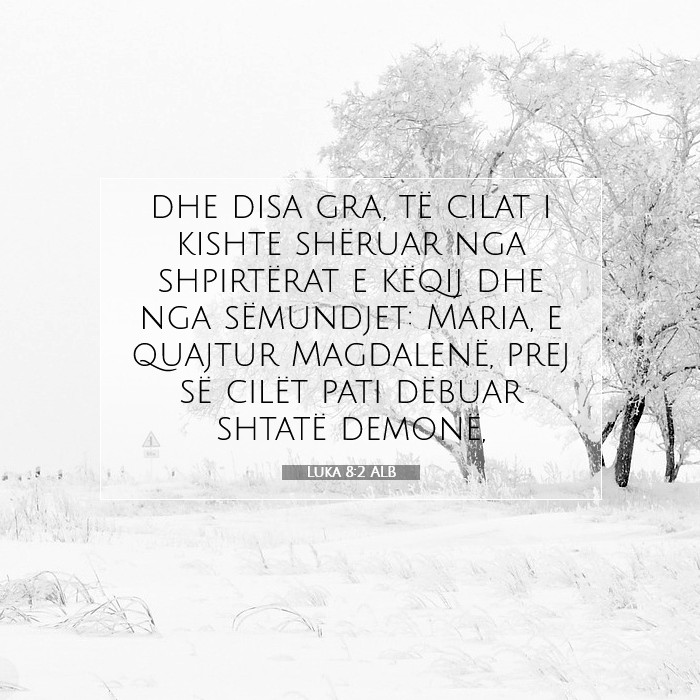 DHE DISA GRA, TË CILAT I
KISHTE SHËRUAR NGA
SHPIRTËRAT E KËQIJ DHE
NGA SËMUNDJET: MARIA, E
QUAJTUR MAGDALENË, PREJ
SË CILËT PATI DËBUAR
SHTATË DEMONË,
LUKA 8:2 ALB